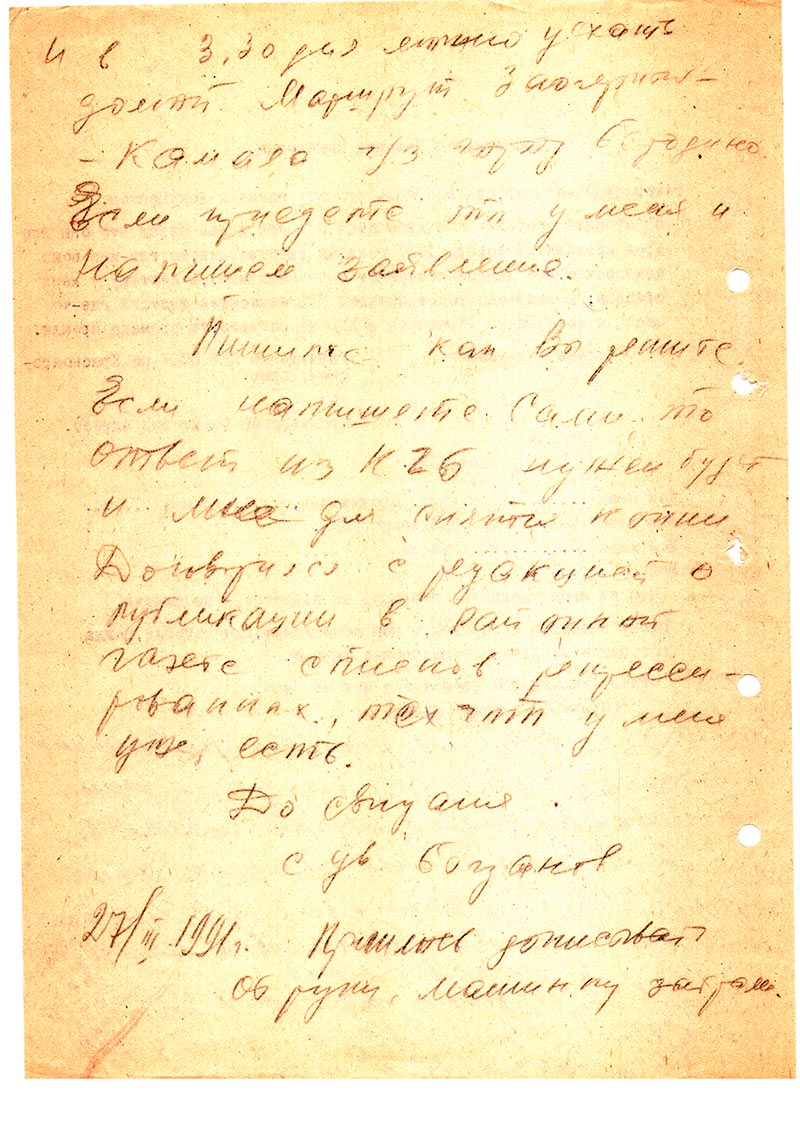 И в 3.30 дня можно уехать
домой. Маршрут Заозерный-
- Камала ч/з город Бородино
Если приедете то у меня и
напишем заявление.
Пишите как Вы решите.
Если напишете Сами, то
ответ из КГБ нужен будет
и мне для снятия копии.
Договорился с редакцией о
публикации в районной
газете списков репресси-
рованных, тех что у меня
уже есть.
До свидания.
с ув Богданов
27/III 1991г. Пришлось дописывать
от руки, машинку забрали.